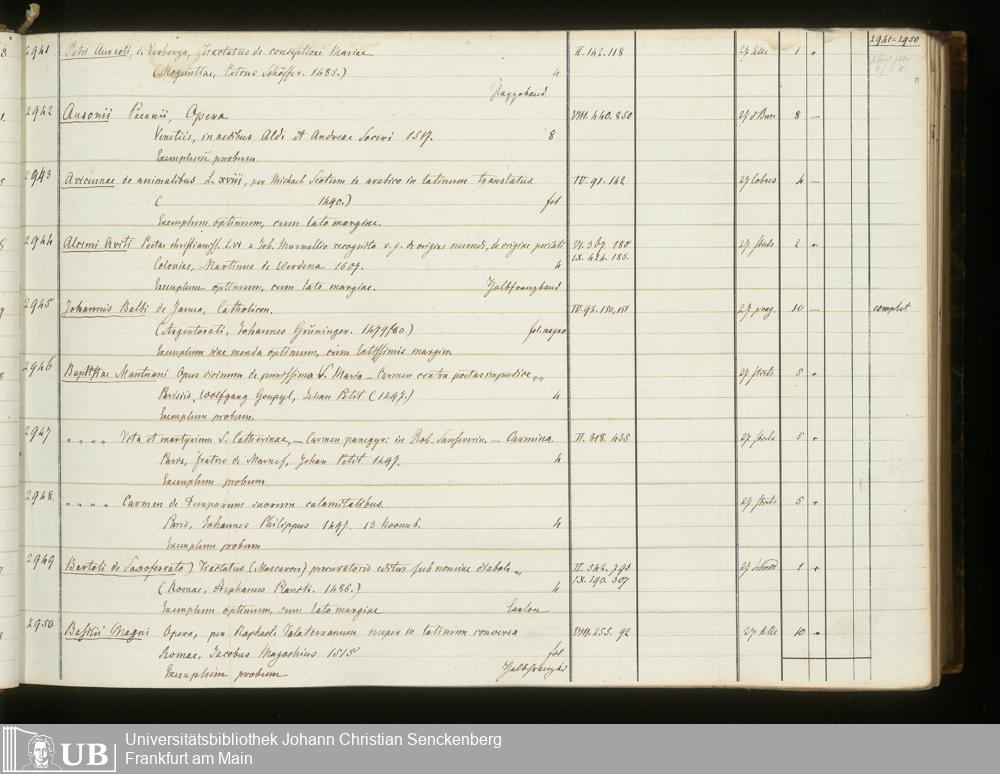 2941=2950
2941 Petri Aureoli, de Verberya, Tractatus de conceptione Mariae VI. 142. 118 27 1 +
(Moguntiae, Petrus Schöffer. 1485.) 4
Pappband
2942 Ausonii Opera VIII. 440. 850 27 d Bure 8 –
Venetiis, in aedibus Aldi et Andreae Soceri 1517. 8
Exemplum probum
2943 Avicennae de animalibus L. xviii, per Michael Scotum de arabico in latinum translatus IV. 91. 142 27 4 –
( 1490.) fol
Exemplum optimum, cum lato margine.
2944 Alcimi Aviti Poetae christianiss. L. VI a Joh. Murmellio recognita v. g. de origine mundi, de origine peccati VI. 367. 185. 27 2 +
Coloniae, Martinus de Werdena 1507. 4 IX. 424. 185.
Exemplum optimum, cum lato margine. Halbfranzband
2945 Johannis Balbi de Janua, Catholicon. IV. 92. 150, 151 27 10 – complet
(Argentorati, Johannes Grüninger. 1479/80.) fol. magno
Exemplum sine menda optimum, cum latissimis margin.
2946 Baptistae Mantuani Opus divinum de purissima V. Maria – Carmen contra poetas impudice „„ 27 5 +
Parisiis, Wolfgang Hopyl, Jehan Petit (1497.) 4
Exemplum probum.
2947 „ „ „ „ Vita et martyrium S. Catherinae, – Carmen panegyri: in Rob. Sanseverin. – Carmina. VI. 318. 435 27 5 +
Paris, fratres de Marnef, Jehan Petit 1497. 4
Exemplum probum
2948. „ „ „ „ Carmen de temporum suorum calamitatibus. 27 5 +
Paris, Johannes Philippus 1497. 13 Novemb. 4
Exemplum probum
2949 Bartoli de Saxoferrato) Tractatus (Mascaron) procuratoris editus sub nomine diaboli „ VI. 542. 793 27 1 +
(Romae, Stephanus Planck. 1486.) 4 IX. 190. 307
Exemplum optimum, cum lato margine Carton
2950. Basilii Magni Opera, per Raphaele Volaterranum nuper in latinum conversa VIII. 253. 92 27 10 +
Romae, Jacobus Mazochius 1515 fol
Exemplum probum Halbfranzbd
UB
Universitätsbibliothek Johann Christian Senckenberg
Frankfurt am Main